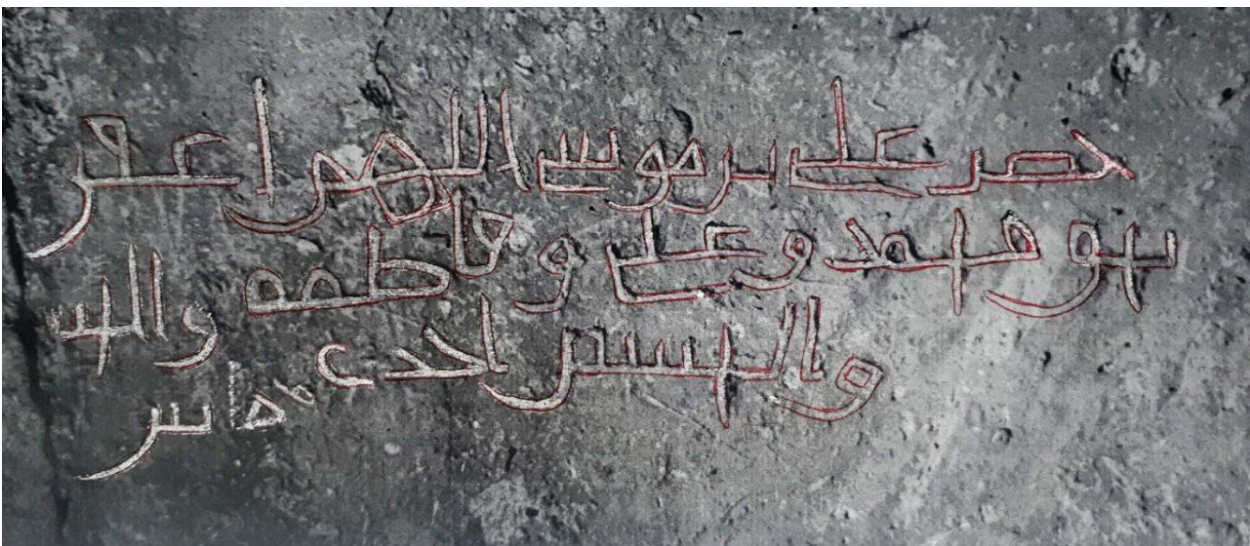 حضر علي بن موسى اللهم اغفر
بحق محمد وعلي وفاطمه والحسن
والحسين احدى